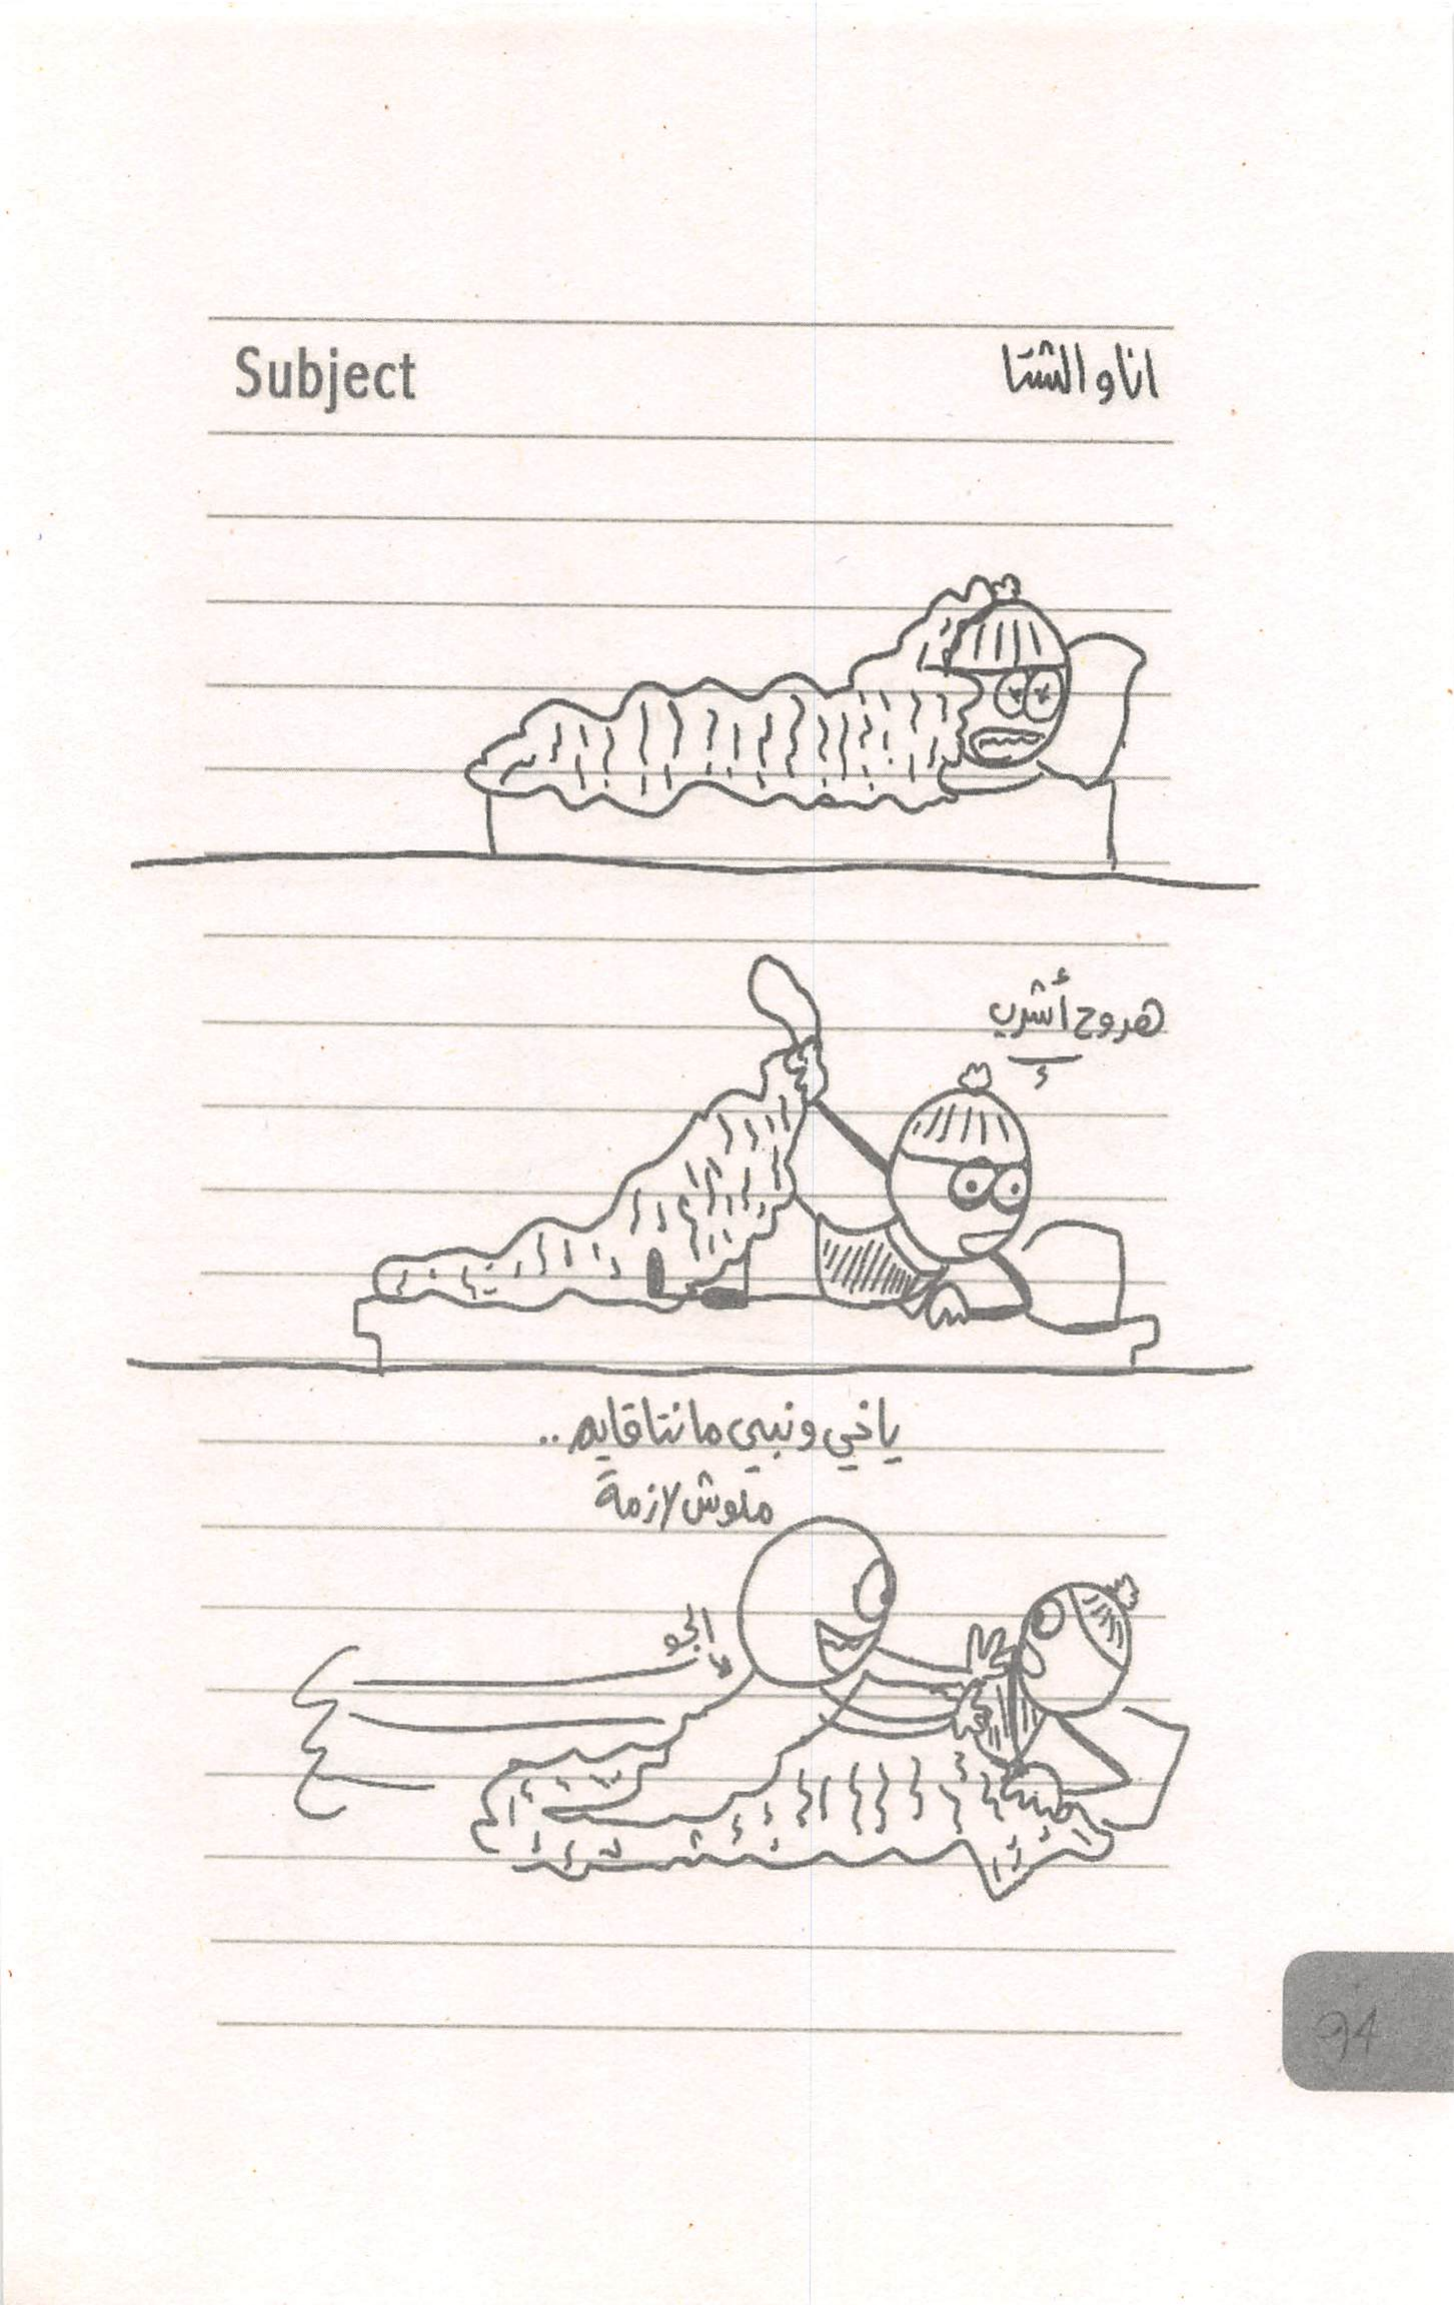 Subject
انا و الشتا
هروح أشرب
ياخي ونبي ما نتا قايم..
ملوش لازمة
الجو
94